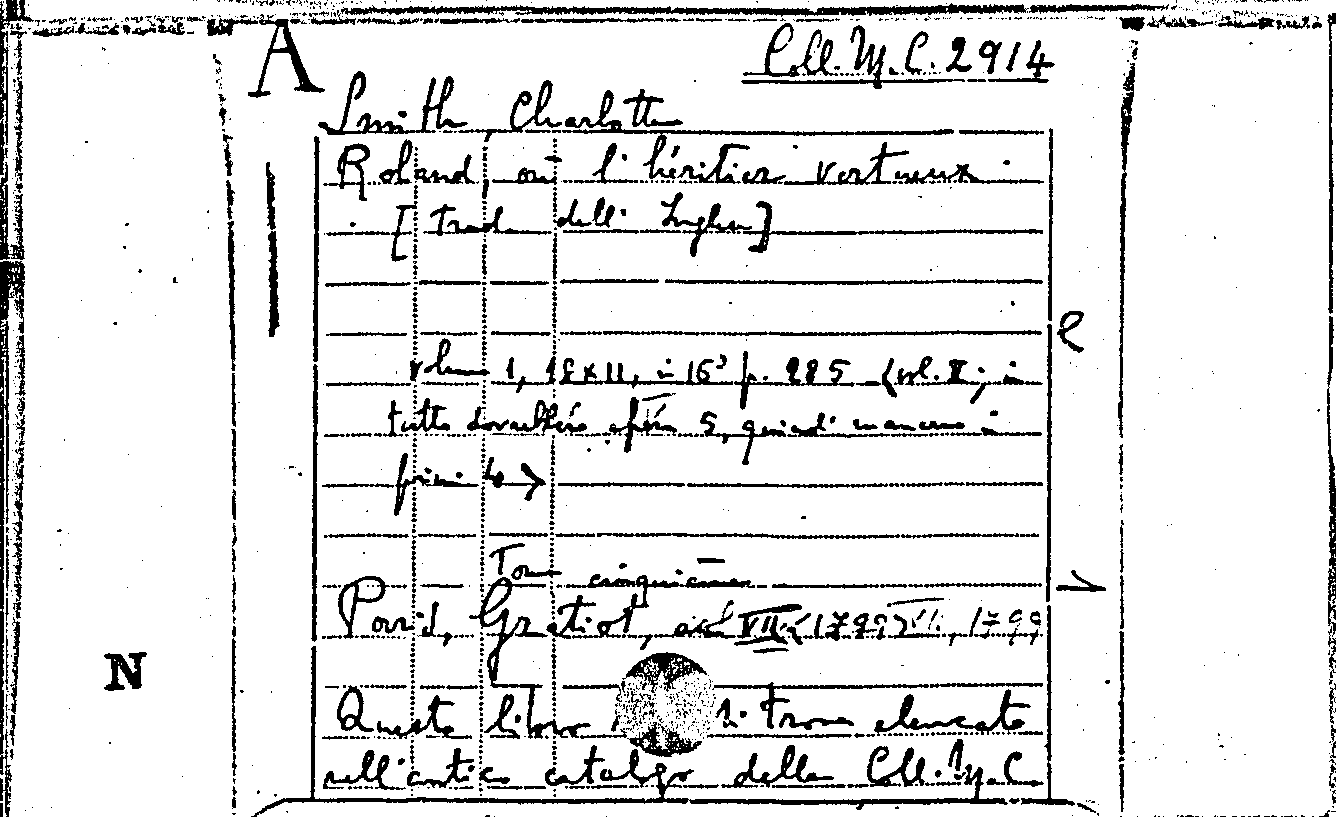 A
Coll. M. C. 2914
Smith, Charlotte
Roland, ou l'héritier vertueux.
[trad. dell'Ingles]
volume 1, 18x11, in 16° p. 285 (vol. V; in
tutto dovrebbero esserne 5, quindi mancano i
primi 4 →
Tome cinquième
Paris, Gratiot, an VII (1799) VII, 1799
Questo libro si trova elencato
nell'antico catalogo della Coll. M. C.
N